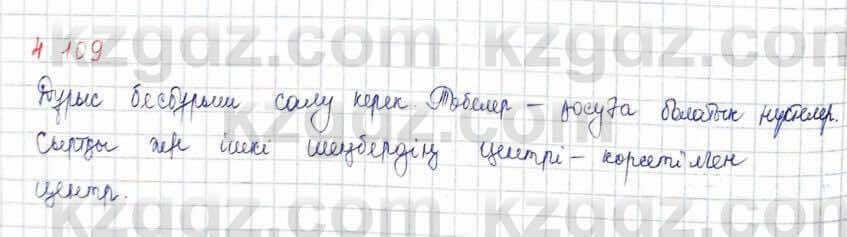 4 109
Дұрыс бесбұрыш салу керек. Төбелер – қосуға болатын нүктелер.
Сыртқы және ішкі шеңбердің центрі – көрсетілген
центр.
kzgdz.com kzgdz.com
kzgdz.com kzgdz.com